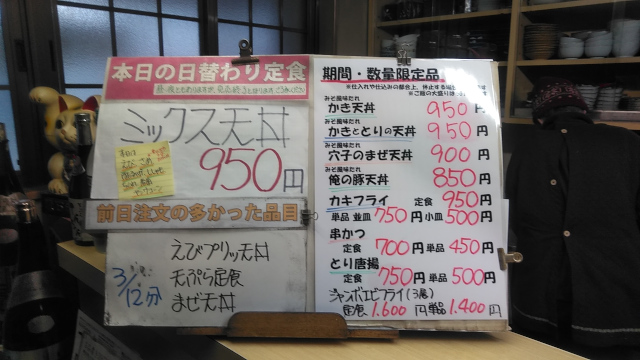 本日の日替わり定食
ミックス天丼
950円
前日注文の多かった品目
3/12分
えびプリッ天丼
天ぷら定食
まぜ天丼
期間・数量限定品
みぞ風味たれ
かき天丼 950円
みぞ風味たれ
かきととりの天丼 950円
みぞ風味たれ
穴子のまぜ天丼 900円
みぞ風味たれ
俺の豚天丼 850円
カキフライ 定食 950円
単品 並皿 750円 小皿 500円
串かつ
定食 700円 単品 450円
とり唐揚
定食 750円 単品 500円
ジャンボエビフライ(3尾)
定食 1.600円 単品 1.400円